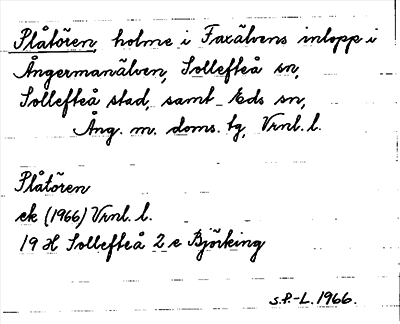 Plåtören, holme i Faxälvens inlopp i
Ångermanälven, Sollefteå sn,
Sollefteå stad, samt Eds sn,
Ång. m. doms. tg, Vrnl. l.
Plåtören
ek (1966) Vrnl. l.
19 H Sollefteå 2 e Björking
S.P.-L. 1966.